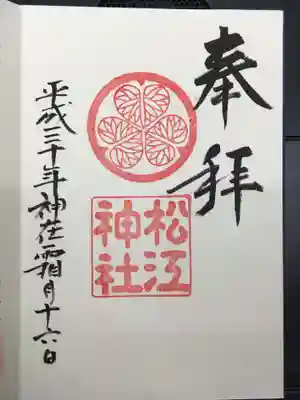 奉拝
松江
神社
平成三十年神在霜月十六日